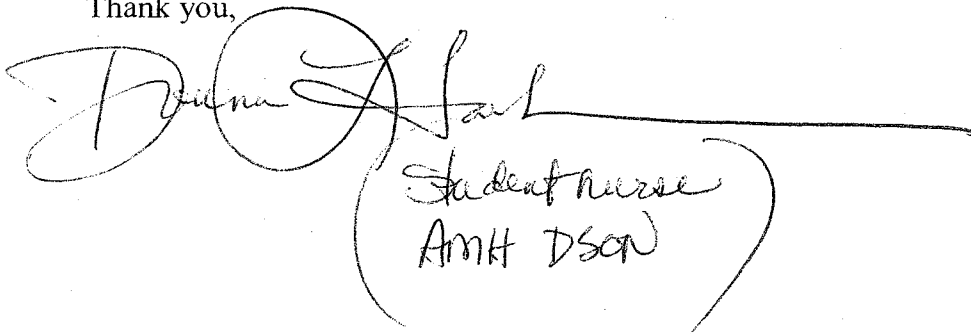 Thank you,
Donna
(Student nurse
AMH DSON)